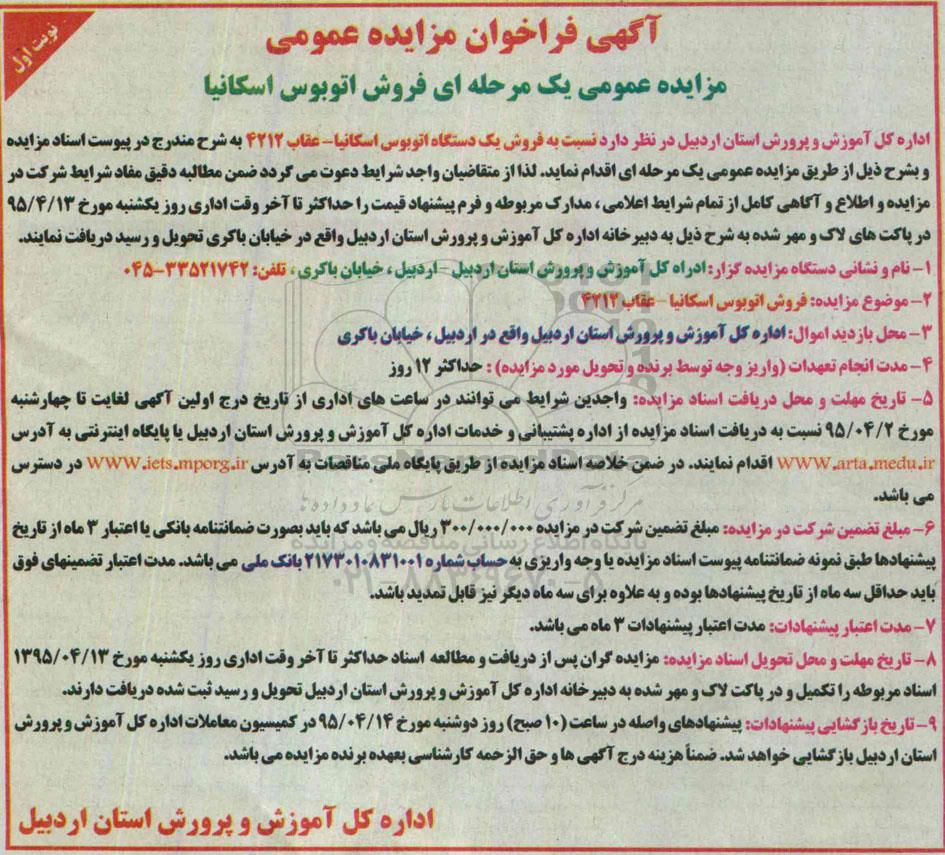 نوبت اول
آگهی فراخوان مزایده عمومی
مزایده عمومی یک مرحله ای فروش اتوبوس اسکانیا
اداره کل آموزش و پرورش استان اردبیل در نظر دارد نسبت به فروش یک دستگاه اتوبوس اسکانیا- عقاب ۴۲۱۲ به شرح مندرج در پیوست اسناد مزایده
و بشرح ذیل از طریق مزایده عمومی یک مرحله ای اقدام نماید. لذا از متقاضیان واجد شرایط دعوت می گردد ضمن مطالبه دقیق مفاد شرایط شرکت در
مزایده و اطلاع و آگاهی کامل از تمام شرایط اعلامی ، مدارک مربوطه و فرم پیشنهاد قیمت را حداکثر تا آخر وقت اداری روز یکشنبه مورخ ۹۵/۴/۱۳
در پاکت های لاک و مهر شده به شرح ذیل به دبیرخانه اداره کل آموزش و پرورش استان اردبیل واقع در خیابان باکری تحویل و رسید دریافت نمایند.
۱- نام و نشانی دستگاه مزایده گزار: ادراه کل آموزش و پرورش استان اردبیل - اردبیل ، خیابان باکری ، تلفن: ۳۳۵۲۱۷۴۲-۰۴۵
۲- موضوع مزایده: فروش اتوبوس اسکانیا - عقاب ۴۲۱۲
۳- محل بازدید اموال: اداره کل آموزش و پرورش استان اردبیل واقع در اردبیل ، خیابان باکری
۴- مدت انجام تعهدات (واریز وجه توسط برنده و تحویل مورد مزایده) : حداکثر ۱۲ روز
۵- تاریخ مهلت و محل دریافت اسناد مزایده: واجدین شرایط می توانند در ساعت های اداری از تاریخ درج اولین آگهی لغایت تا چهارشنبه
مورخ ۹۵/۰۴/۲ نسبت به دریافت اسناد مزایده از اداره پشتیبانی و خدمات اداره کل آموزش و پرورش استان اردبیل یا پایگاه اینترنتی به آدرس
WWW.arta.medu.ir اقدام نمایند. در ضمن خلاصه اسناد مزایده از طریق پایگاه ملی مناقصات به آدرس WWW.iets.mporg.ir در دسترس
می باشد.
۶- مبلغ تضمین شرکت در مزایده: مبلغ تضمین شرکت در مزایده ۳۰۰/۰۰۰/۰۰۰ ریال می باشد که باید بصورت ضمانتنامه بانکی یا اعتبار ۳ ماه از تاریخ
پیشنهادها طبق نمونه ضمانتنامه پیوست اسناد مزایده یا وجه واریزی به حساب شماره ۲۱۷۳۰۱۰۸۳۱۰۰۱ بانک ملی می باشد. مدت اعتبار تضمینهای فوق
باید حداقل سه ماه از تاریخ پیشنهادها بوده و به علاوه برای سه ماه دیگر نیز قابل تمدید باشد.
۷- مدت اعتبار پیشنهادات: مدت اعتبار پیشنهادات ۳ ماه می باشد.
۸- تاریخ مهلت و محل تحویل اسناد مزایده: مزایده گران پس از دریافت و مطالعه اسناد حداکثر تا آخر وقت اداری روز یکشنبه مورخ ۱۳۹۵/۰۴/۱۳
اسناد مربوطه را تکمیل و در پاکت لاک و مهر شده به دبیرخانه اداره کل آموزش و پرورش استان اردبیل تحویل و رسید ثبت شده دریافت دارند.
۹- تاریخ بازگشایی پیشنهادات: پیشنهادهای واصله در ساعت (۱۰ صبح) روز دوشنبه مورخ ۹۵/۰۴/۱۴ در کمیسیون معاملات اداره کل آموزش و پرورش
استان اردبیل بازگشایی خواهد شد. ضمناً هزینه درج آگهی ها و حق الزحمه کارشناسی بعهده برنده مزایده می باشد.
اداره کل آموزش و پرورش استان اردبیل